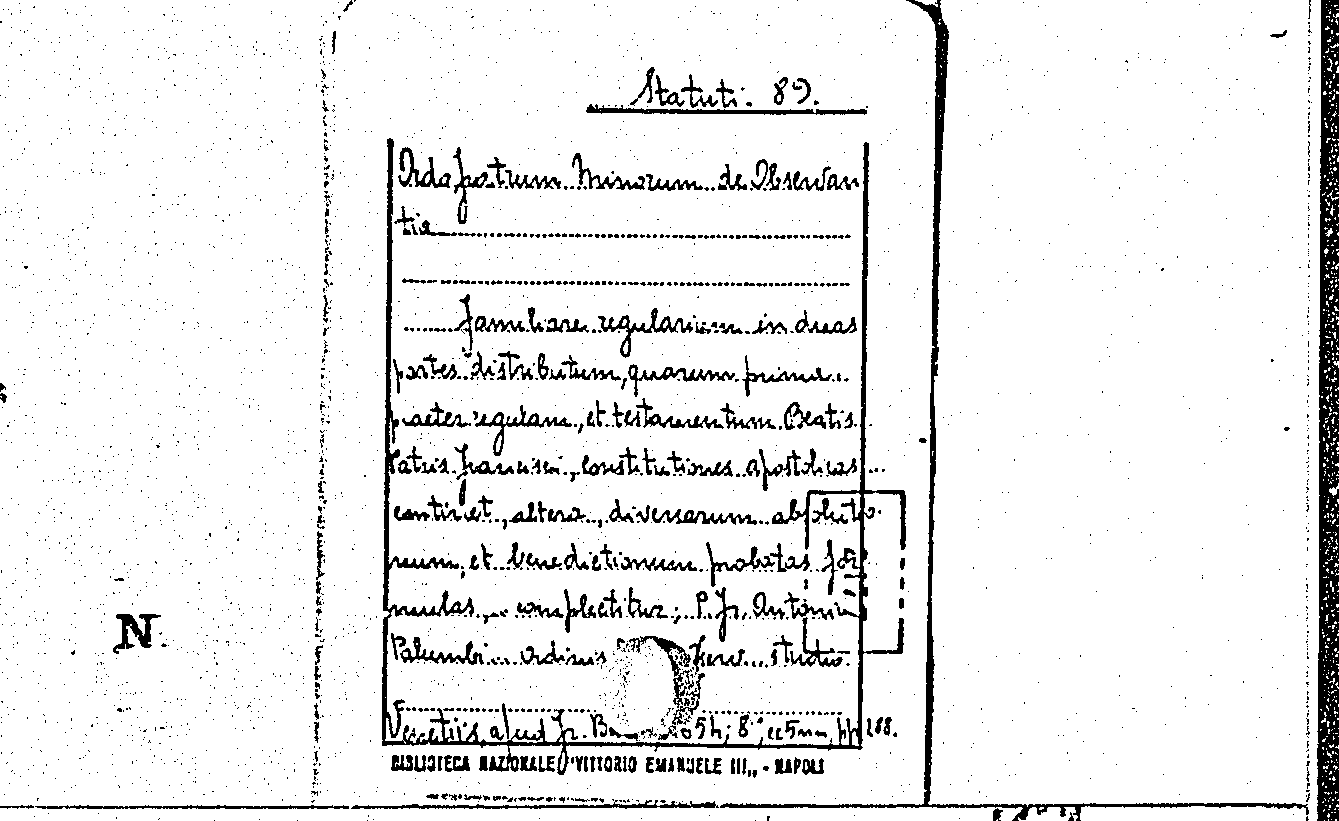 Statuti. 89.
Ordo fratrum Minorum de Observan
tia
Familiare regularium in duas
partes distributum, quarum prima
praeter regulam, et testamentum Beatis
Patris Francisci, constitutiones apostolicas
continet, altera, diversarum absolutio
num, et benedictionum probatas for
mulas, complectitur; P. Fr. Antonii
Palumbi ordinis studio.
Venetiis, apud Fr. 8°, pp 288.
BIBLIOTECA NAZIONALE "VITTORIO EMANUELE III„ - NAPOLI
N